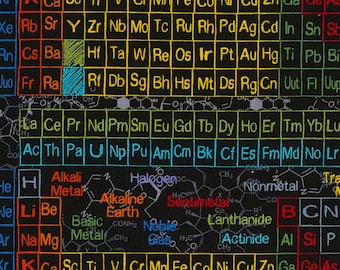 Kr Rb Sr Y Zr Nb Mo Tc Ru Rh Pd Ag Cd In Sn
Xe Cs Ba Hf Ta W Re Os Ir Pt Au Hg Tl Pb
Uuo Fr Ra Rf Db Sg Bh Hs Mt Ds Rg Cn Uut Fl
La Ce Pr Nd Pm Sm Eu Gd Tb Dy Ho Er Tm Yb Lu
Ac Th Pa U Np Pu Am Cm Bk Cf Es Fm Md No
He H Alkali Metal Halogen Nonmetal
Ne Li Be Alkaline Earth Semimetal B C
Ar Na Mg Basic Metal Noble Gas Lanthanide Actinide Al Si P
Kr K Ca Sc Ti V Cr Mn Fe Co Ni Cu Zn Ga Ge